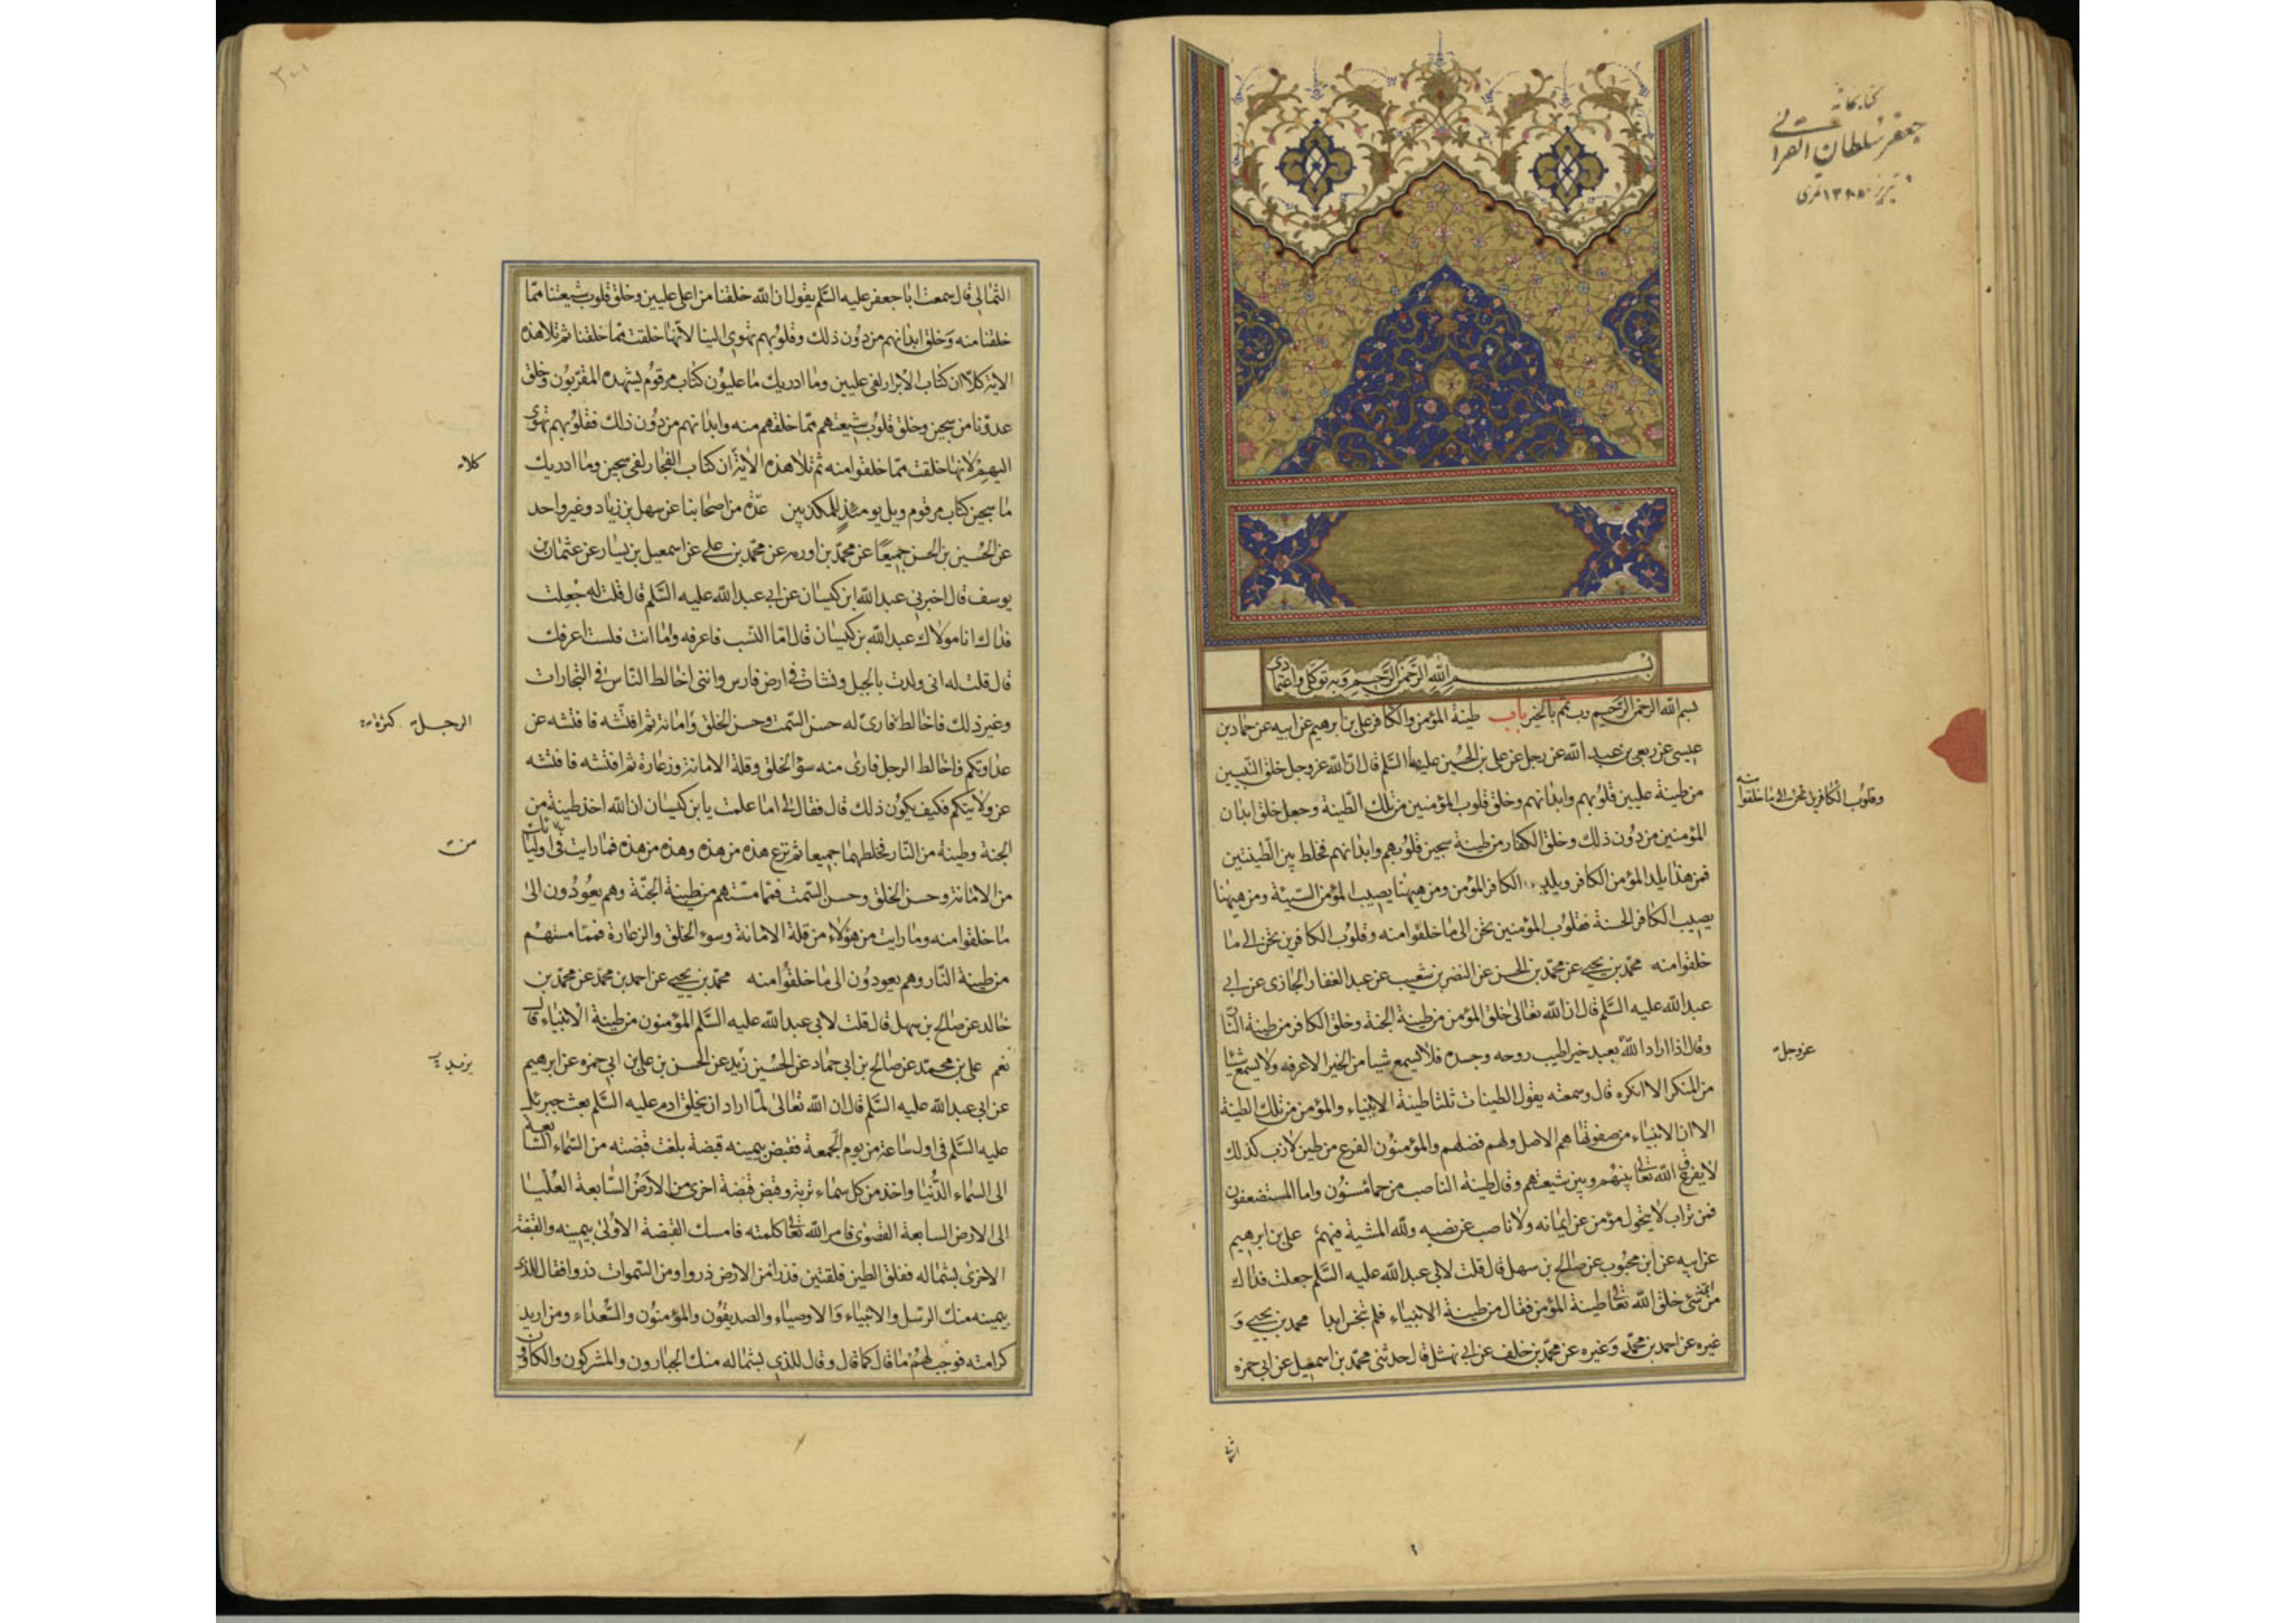 كتابخانه
جعفر سلطان القرائی
تبریز
بسم الله الرحمن الرحيم وبه توكلی واعتمادی
بسم الله الرحمن الرحيم رب تمم بالخير باب طينة المؤمن والكافر علی بن ابرهيم عن ابيه عن حماد بن
عيسی عن ربعی بن عبد الله عن رجل عن علی بن الحسين عليهما السلم قال ان الله عز وجل خلق النبيين
من طينة عليين قلوبهم وابدانهم وخلق قلوب المؤمنين من تلك الطينة وجعل خلق ابدان
وقلوب الكافرين تحن الی ما خلقوا منه
المؤمنين من دون ذلك وخلق الكفار من طينة سجين قلوبهم وابدانهم فخلط بين الطينتين
فمن هذا يلد المؤمن الكافر ويلد الكافر المؤمن ومن هيهنا يصيب المؤمن السيئة ومن هيهنا
يصيب الكافر الحسنة فقلوب المؤمنين تحن الی ما خلقوا منه وقلوب الكافرين تحن الی ما
خلقوا منه محمد بن يحيی عن محمد بن الحسن عن النضر بن شعيب عن عبد الغفار الجازی عن ابی
عبد الله عليه السلم قال ان الله تعالی خلق المؤمن من طينة الجنة وخلق الكافر من طينة النار
وقال اذا اراد الله بعبد خيرا طيب روحه وجسده فلا يسمع شيا من الخير الا عرفه ولا يسمع شيئا
عز وجل
من المنكر الا انكره قال وسمعته يقول الطينات ثلثا طينة الانبياء والمؤمن من تلك الطينة
الا ان الانبياء من صفوتها هم الاصل ولهم فضلهم والمؤمنون الفرع من طين لازب كذلك
لا يفرق الله تعالی بينهم وبين شيعتهم وقال طينة الناصب من حما مسنون واما المستضعفون
فمن تراب لا يتحول مؤمن عن ايمانه ولا ناصب عن نصبه ولله المشية فيهم علی بن ابرهيم
عن ابيه عن ابن محبوب عن صالح بن سهل قال قلت لابی عبد الله عليه السلم جعلت فداك
من ای شی خلق الله تعالی طينة المؤمن فقال من طينة الانبياء فلم تنجس ابدا محمد بن يحيی و
غيره عن احمد بن محمد وغيره عن محمد بن خلف عن ابی نهشل قال حدثنی محمد بن اسمعيل عن ابی حمزه
الثمالی قال سمعت ابا جعفر عليه السلم يقول ان الله خلقنا من اعلی عليين وخلق قلوب شيعتنا مما
خلقنا منه وخلق ابدانهم من دون ذلك وقلوبهم تهوی الينا لانها خلقت مما خلقنا ثم تلا هذه
الاية كلا ان كتاب الابرار لفی عليين وما ادريك ما عليون كتاب مرقوم يشهده المقربون وخلق
عدونا من سجين وخلق قلوب شيعتهم مما خلقهم منه وابدانهم من دون ذلك فقلوبهم تهوی
اليهم لانها خلقت مما خلقوا منه ثم تلا هذه الاية ان كتاب الفجار لفی سجين وما ادريك
كلا
ما سجين كتاب مرقوم ويل يومئذ للمكذبين عدة من اصحابنا عن سهل بن زياد وغير واحد
عن الحسين بن الحسن جميعا عن محمد بن اورمه عن محمد بن علی عن اسمعيل بن يسار عن عثمان بن
يوسف قال اخبرنی عبد الله ابن كيسان عن ابی عبد الله عليه السلم قال قلت له جعلت
فداك انا مولاك عبد الله بن كيسان قال اما النسب فاعرفه واما انت فلست اعرفك
قال قلت له انی ولدت بالجبل ونشات فی ارض فارس واننی اخالط الناس فی التجارات
وغير ذلك فاخالط فاری له حسن السمت وحسن الخلق وامانة ثم افتشه فافتشه عن
الرجل
عداوتكم واخالط الرجل فاری منه سؤ الخلق وقلة الامانة وزعارة ثم افتشه فافتشه
عن ولايتكم فكيف يكون ذلك قال فقال لی اما علمت يا بن كيسان ان الله اخذ طينة من
الجنة وطينة من النار فخلطهما جميعا ثم نزع هذه من هذه وهذه من هذه فما رايت فی اولئك
من
من الامانة وحسن الخلق وحسن السمت فمما مستهم من طينة الجنة وهم يعودون الی
ما خلقوا منه وما رايت من هؤلاء من قلة الامانة وسوء الخلق والزعارة فمما مستهم
من طينة النار وهم يعودون الی ما خلقوا منه محمد بن يحيی عن احمد بن محمد عن محمد بن
خالد عن صالح بن سهل قال قلت لابی عبد الله عليه السلم المؤمنون من طينة الانبياء قال
نعم علی بن محمد عن صالح بن ابی حماد عن الحسين زيد عن الحسن بن علی بن ابی حمزه عن ابرهيم
بن يزيد
عن ابی عبد الله عليه السلم قال ان الله تعالی لما اراد ان يخلق ادم عليه السلم بعث جبرئل
عليه السلم فی اول ساعة من يوم الجمعة فقبض بيمينه قبضة بلغت قبضته من السماء السابعة
الی السماء الدنيا واخذ من كل سماء تربة وقبض قبضة اخری من الارض السابعة العليا
الی الارض السابعة القصوی فامر الله تعالی كلمته فامسك القبضة الاولی بيمينه والقبضة
الاخری بشماله ففلق الطين فلقتين فذرا من الارض ذروا ومن السموات ذروا فقال للذی
بيمينه منك الرسل والانبياء والاوصياء والصديقون والمؤمنون والسعداء ومن اريد
كرامته فوجب لهم ما قال كما قال وقال للذی بشماله منك الجبارون والمشركون والكافرون